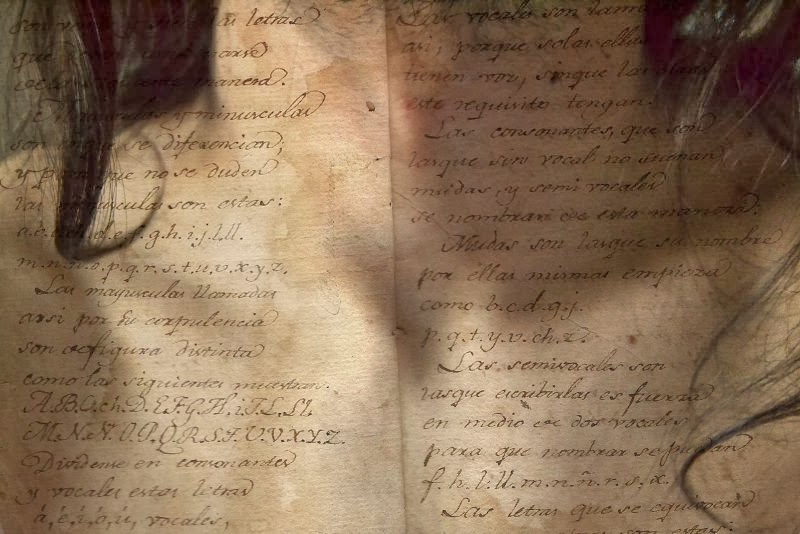 son
letras
que
marse
manera.
y minusculas
son
se diferencian;
y
que no se duden
las minusculas son estas:
a.b.c.ch.d.e.f.g.h.i.j.l.ll.
m.n.ñ.o.p.q.r.s.t.u.v.x.y.z.
Las mayusculas llamadas
assi por su corpulencia
son de figura distinta
como las siguientes muestran.
A.B.C.ch.D.E.F.G.H.i.J.L.Ll
M.N.Ñ.O.P.Q.R.S.T.U.V.X.Y.Z.
Dividense en consonantes
y vocales estas letras
á,é,í,ó,ú, vocales,
Las vocales son
asi; porque solas ellas
tienen voz, sinque las
este requisito tengan.
Las consonantes, que son
lasque sin vocal no suenan
mudas, y semi vocales
se nombran de esta manera:
Mudas son lasque su nombre
por éllas mismas empieza
como b.c.d.g.j.
p.q.t.y.v.ch.z.
Las semivocales son
lasque escribirlas es fuerza
en medio de dos vocales
para que nombrar se puedan
f.h.l.ll.m.n.ñ.r.s.x.
Las letras que se equivocan
son estas: